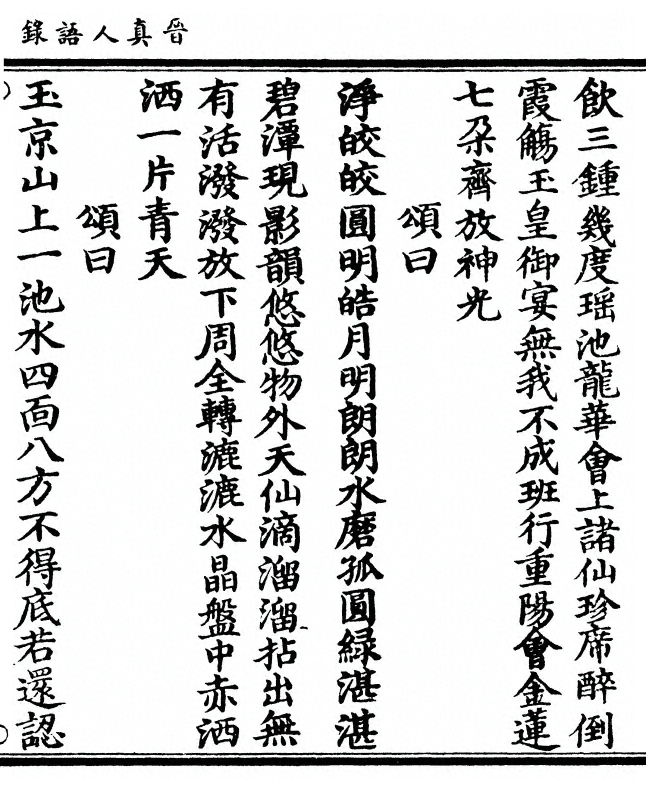 晉真人語錄
飲三鍾幾度瑶池龍華會上諸仙珍席醉倒
霞觴玉皇御宴無我不成班行重陽會金蓮
七朶齊放神光
頌曰
淨皎皎圓明皓月明朗朗水磨孤圓綠湛湛
碧潭現影韻悠悠物外天仙滴溜溜拈出無
有活潑潑放下周全轉漉漉水晶盤中赤洒
洒一片青天
頌曰
玉京山上一池水四面八方不得底若還認